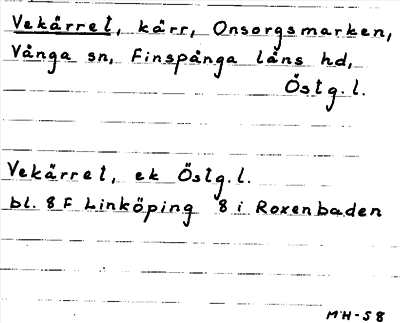 Vekärret, kärr, Onsorgsmarken,
Vånga sn, Finspånga läns hd,
Östg.l.
Vekärret, ek Östg.l.
bl. 8 F Linköping 8 i Roxenbaden
MH-58